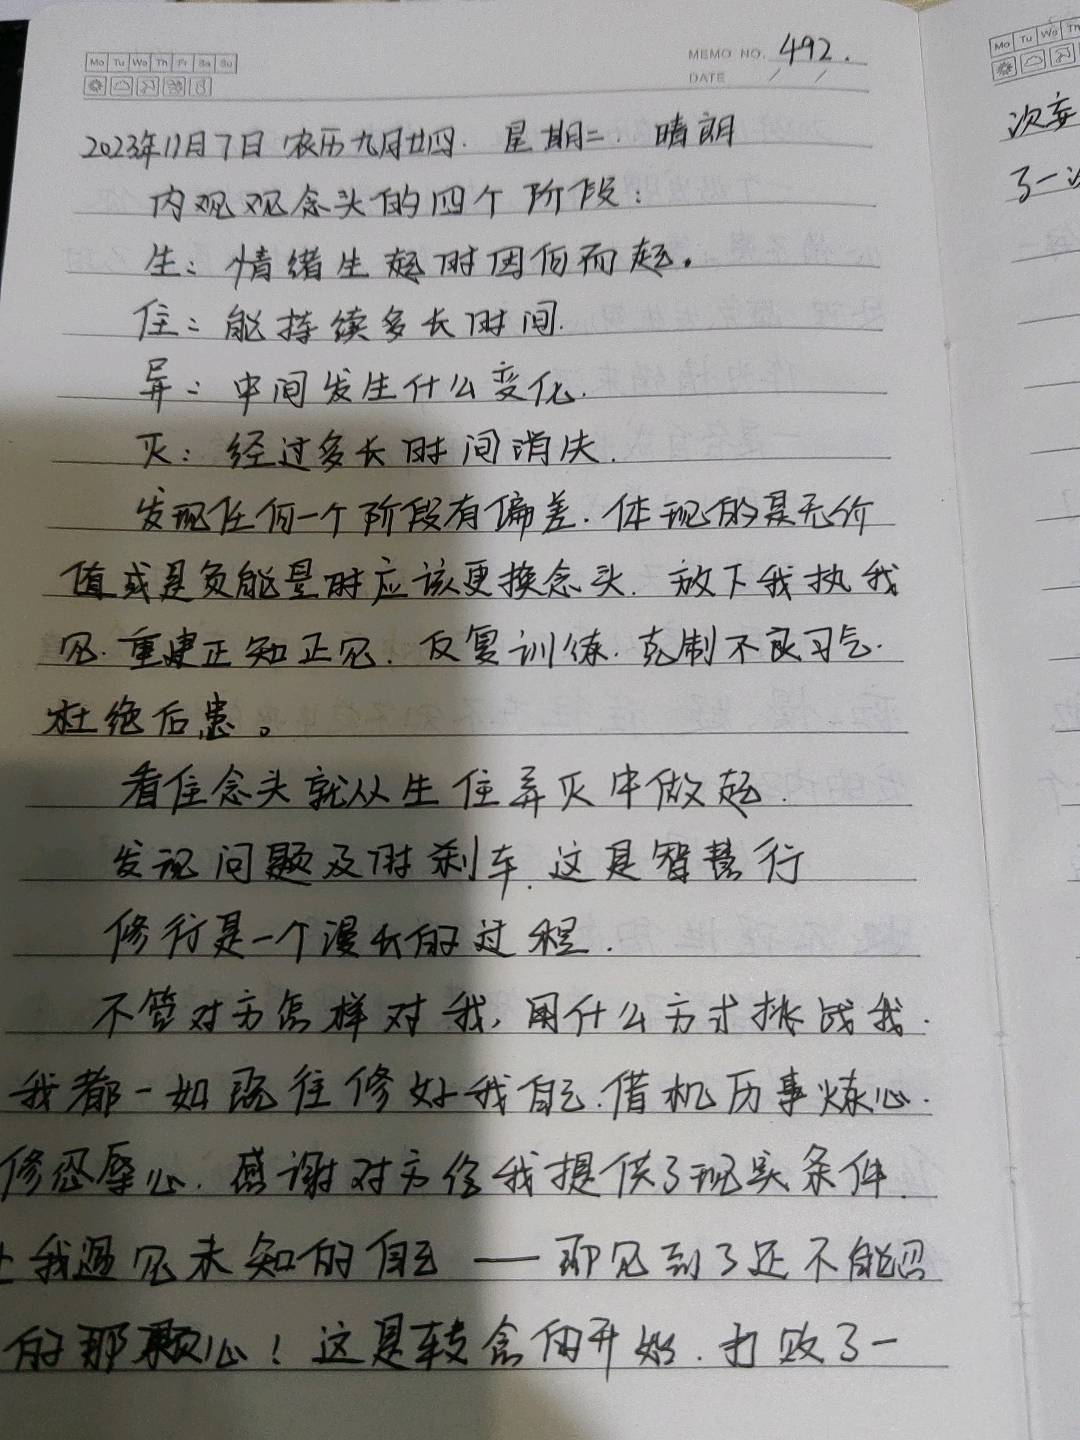 Mo Tu We Th Fr Sa Su
MEMO NO. 492.
DATE / /
2023年11月7日 农历九月廿四. 星期二. 晴朗
内观观念头的四个阶段:
生: 情绪生起时因何而起.
住: 能持续多长时间.
异: 中间发生什么变化.
灭: 经过多长时间消失.
发现任何一个阶段有偏差. 体现的是无价
值或是负能量时应该更换念头. 放下我执我
见. 重建正知正见. 反复训练. 克制不良习气.
杜绝后患。
看住念头就从生住异灭中做起.
发现问题及时刹车. 这是智慧行
修行是一个漫长的过程.
不管对方怎样对我, 用什么方式挑战我.
我都一如既往修好我自己. 借机历事炼心.
修忍辱心. 感谢对方给我提供了现实条件.
让我遇见未知的自己——即见到了还不能忍
的那颗心! 这是转念的开始. 打败了一
Mo Tu We Th
次
了一次